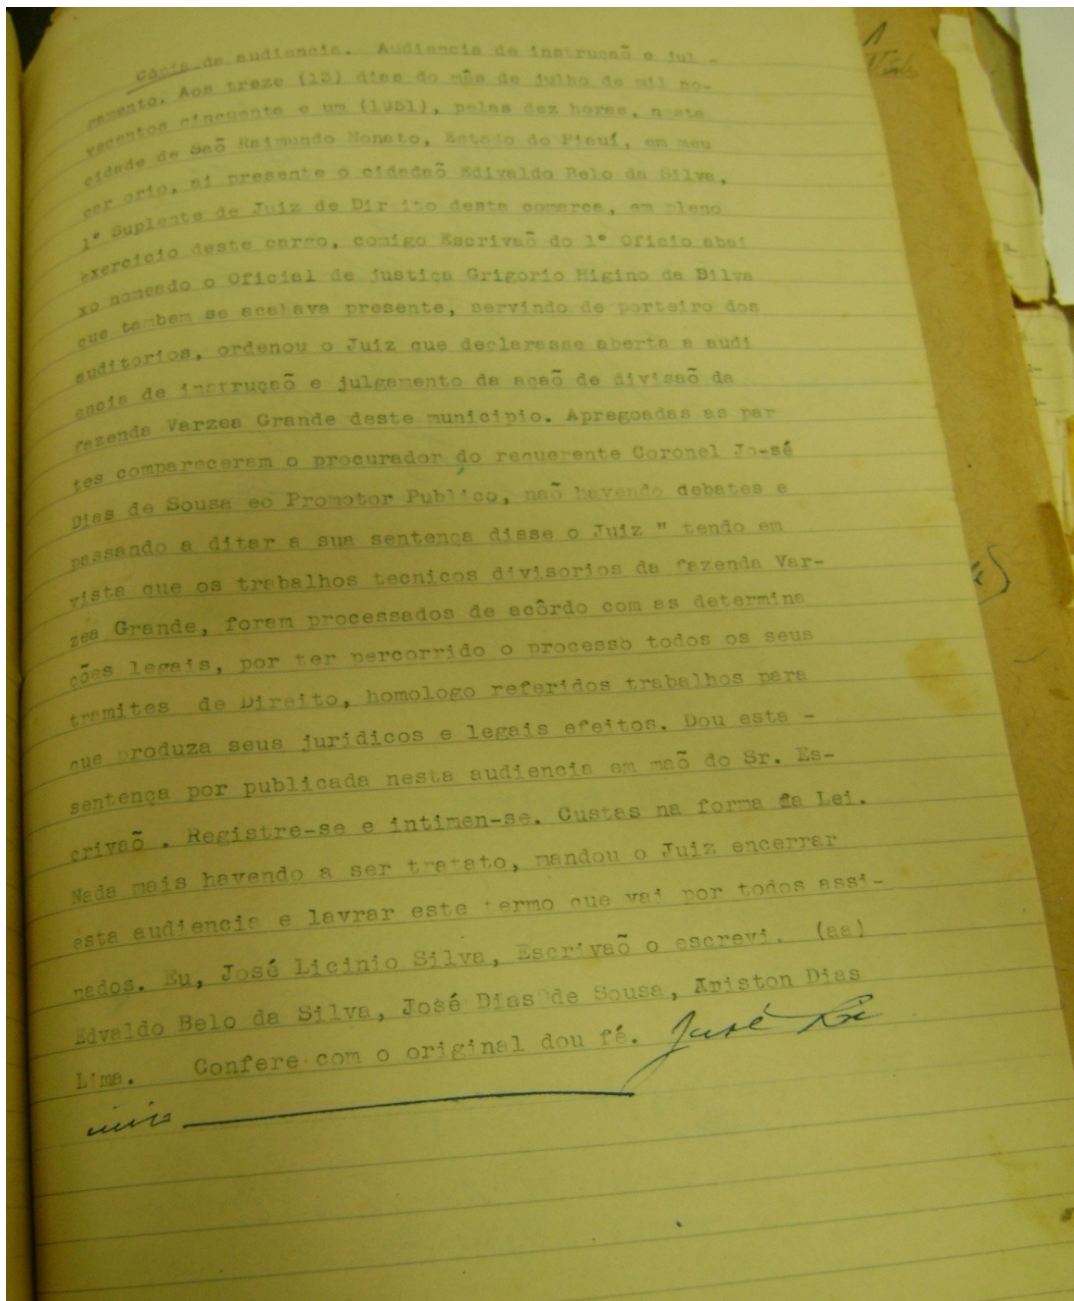 Cópia da audiencia. Audiencia de instruçaõ e jul -
gamento. Aos treze (13) dias do mês de julho de mil no-
vecentos cincuente e um (1951), pelas dez horas, neste
cidade de Saõ Raimundo Nonato, Estado do Piauí, em meu
car orio, ai presente o cidadaõ Edivaldo Belo da Silva,
1º Suplente de Juiz de Dir ito desta comarca, em pleno
exercicio deste cargo, comigo Escrivaõ do 1º Oficio abai
xo nomeado o Oficial de justiça Grigorio Higino da Bilva
que tambem se achava presente, servindo de porteiro dos
auditorios, ordenou o Juiz que declarasse aberta a audi
encia de instruçaõ e julgamento da açaõ de divisaõ da
fazenda Varzea Grande deste municipio. Apregoadas as par
tes compareceram o procurador do requerente Coronel Jo-sé
Dias de Sousa eo Promotor Publico, naõ havendo debates e
passando a ditar a sua sentença disse o Juiz " tendo em
vista que os trabalhos tecnicos divisorios da fazenda Var-
zea Grande, foram processados de acôrdo com as determina
ções legais, por ter percorrido o processo todos os seus
tramites de Direito, homologo referidos trabalhos para
que produza seus juridicos e legais efeitos. Dou esta -
sentença por publicada nesta audiencia em maõ do Sr. Es-
crivaõ . Registre-se e intimen-se. Custas na forma da Lei.
Nada mais havendo a ser tratato, mandou o Juiz encerrar
esta audiencia e lavrar este termo que vai por todos assi-
nados. Eu, José Licinio Silva, Escrivaõ o escrevi. (aa)
Edvaldo Belo da Silva, José Dias de Sousa, Ariston Dias
Lima. Confere com o original dou fé. José Lic
inio